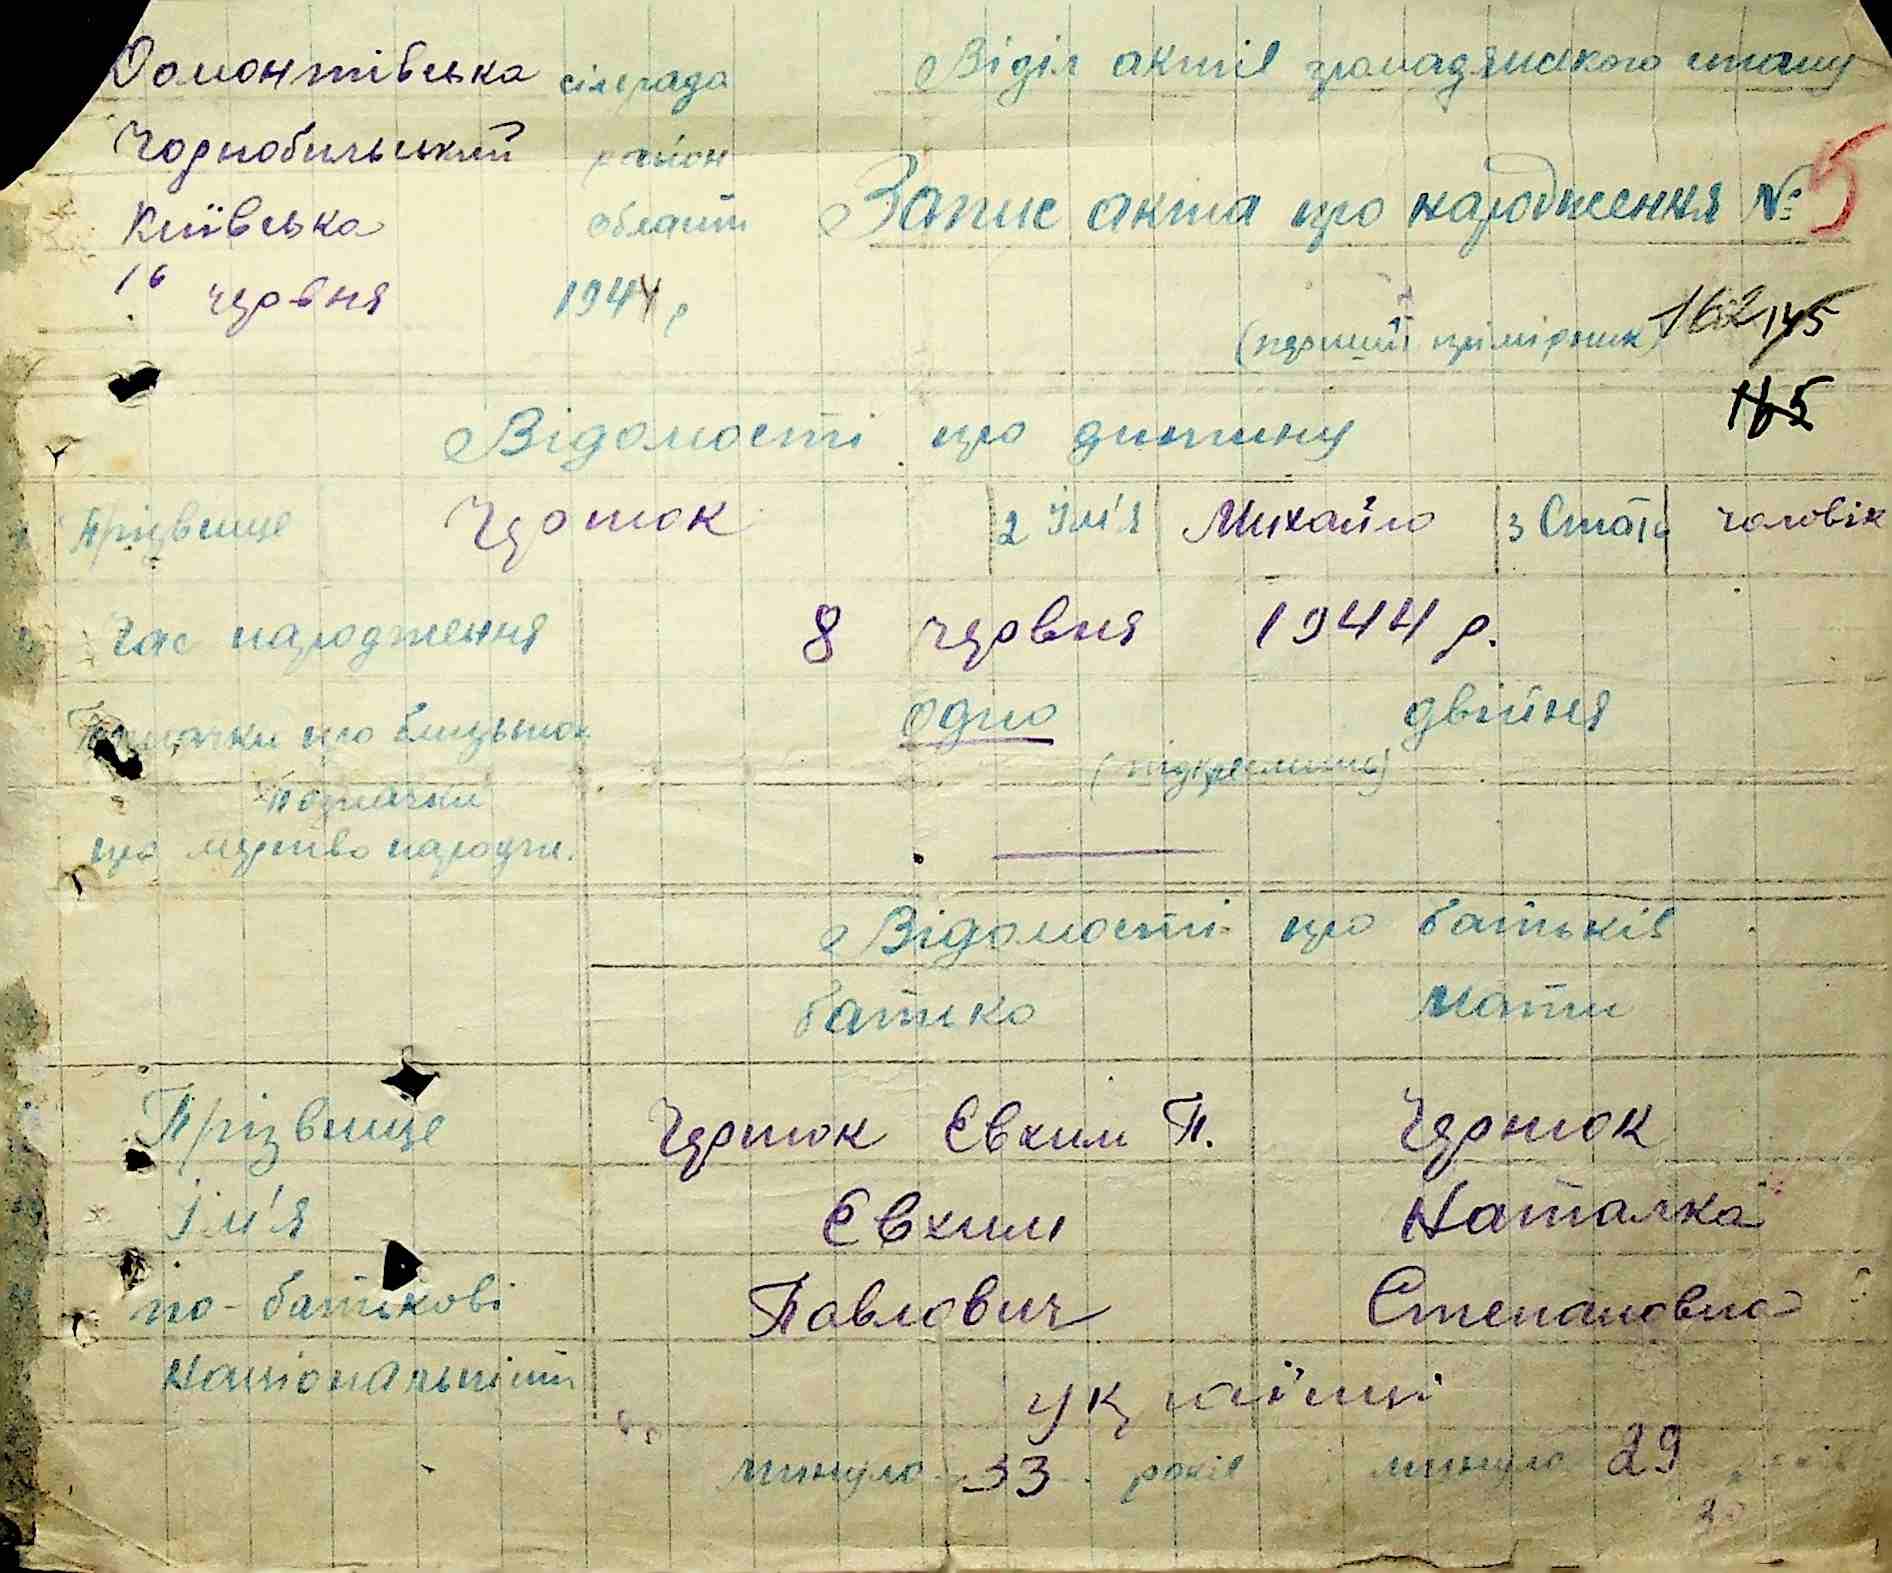 Домонтівська сільрада Віділ актів громадянского стану
Чорнобильський район
Київська області Запис акта про народження № 5
16 червня 1944 р
(перший примірник) 162 145
165
Відомості про дитину
Прізвище Черток 2 Ім'я Михайло 3 Стать чоловік
Час народження 8 червня 1944 р.
Позначки про близьнюк одно двійня
(підкреслить)
Позначки
про мертво народж.
Відомості про батьків
батько мати
Прізвище Черток Євхим П. Черток
Ім'я Євхим Наталка
по-батькові Павлович Степановна
Національність українці
минуло 33 років минуло 29 років
30